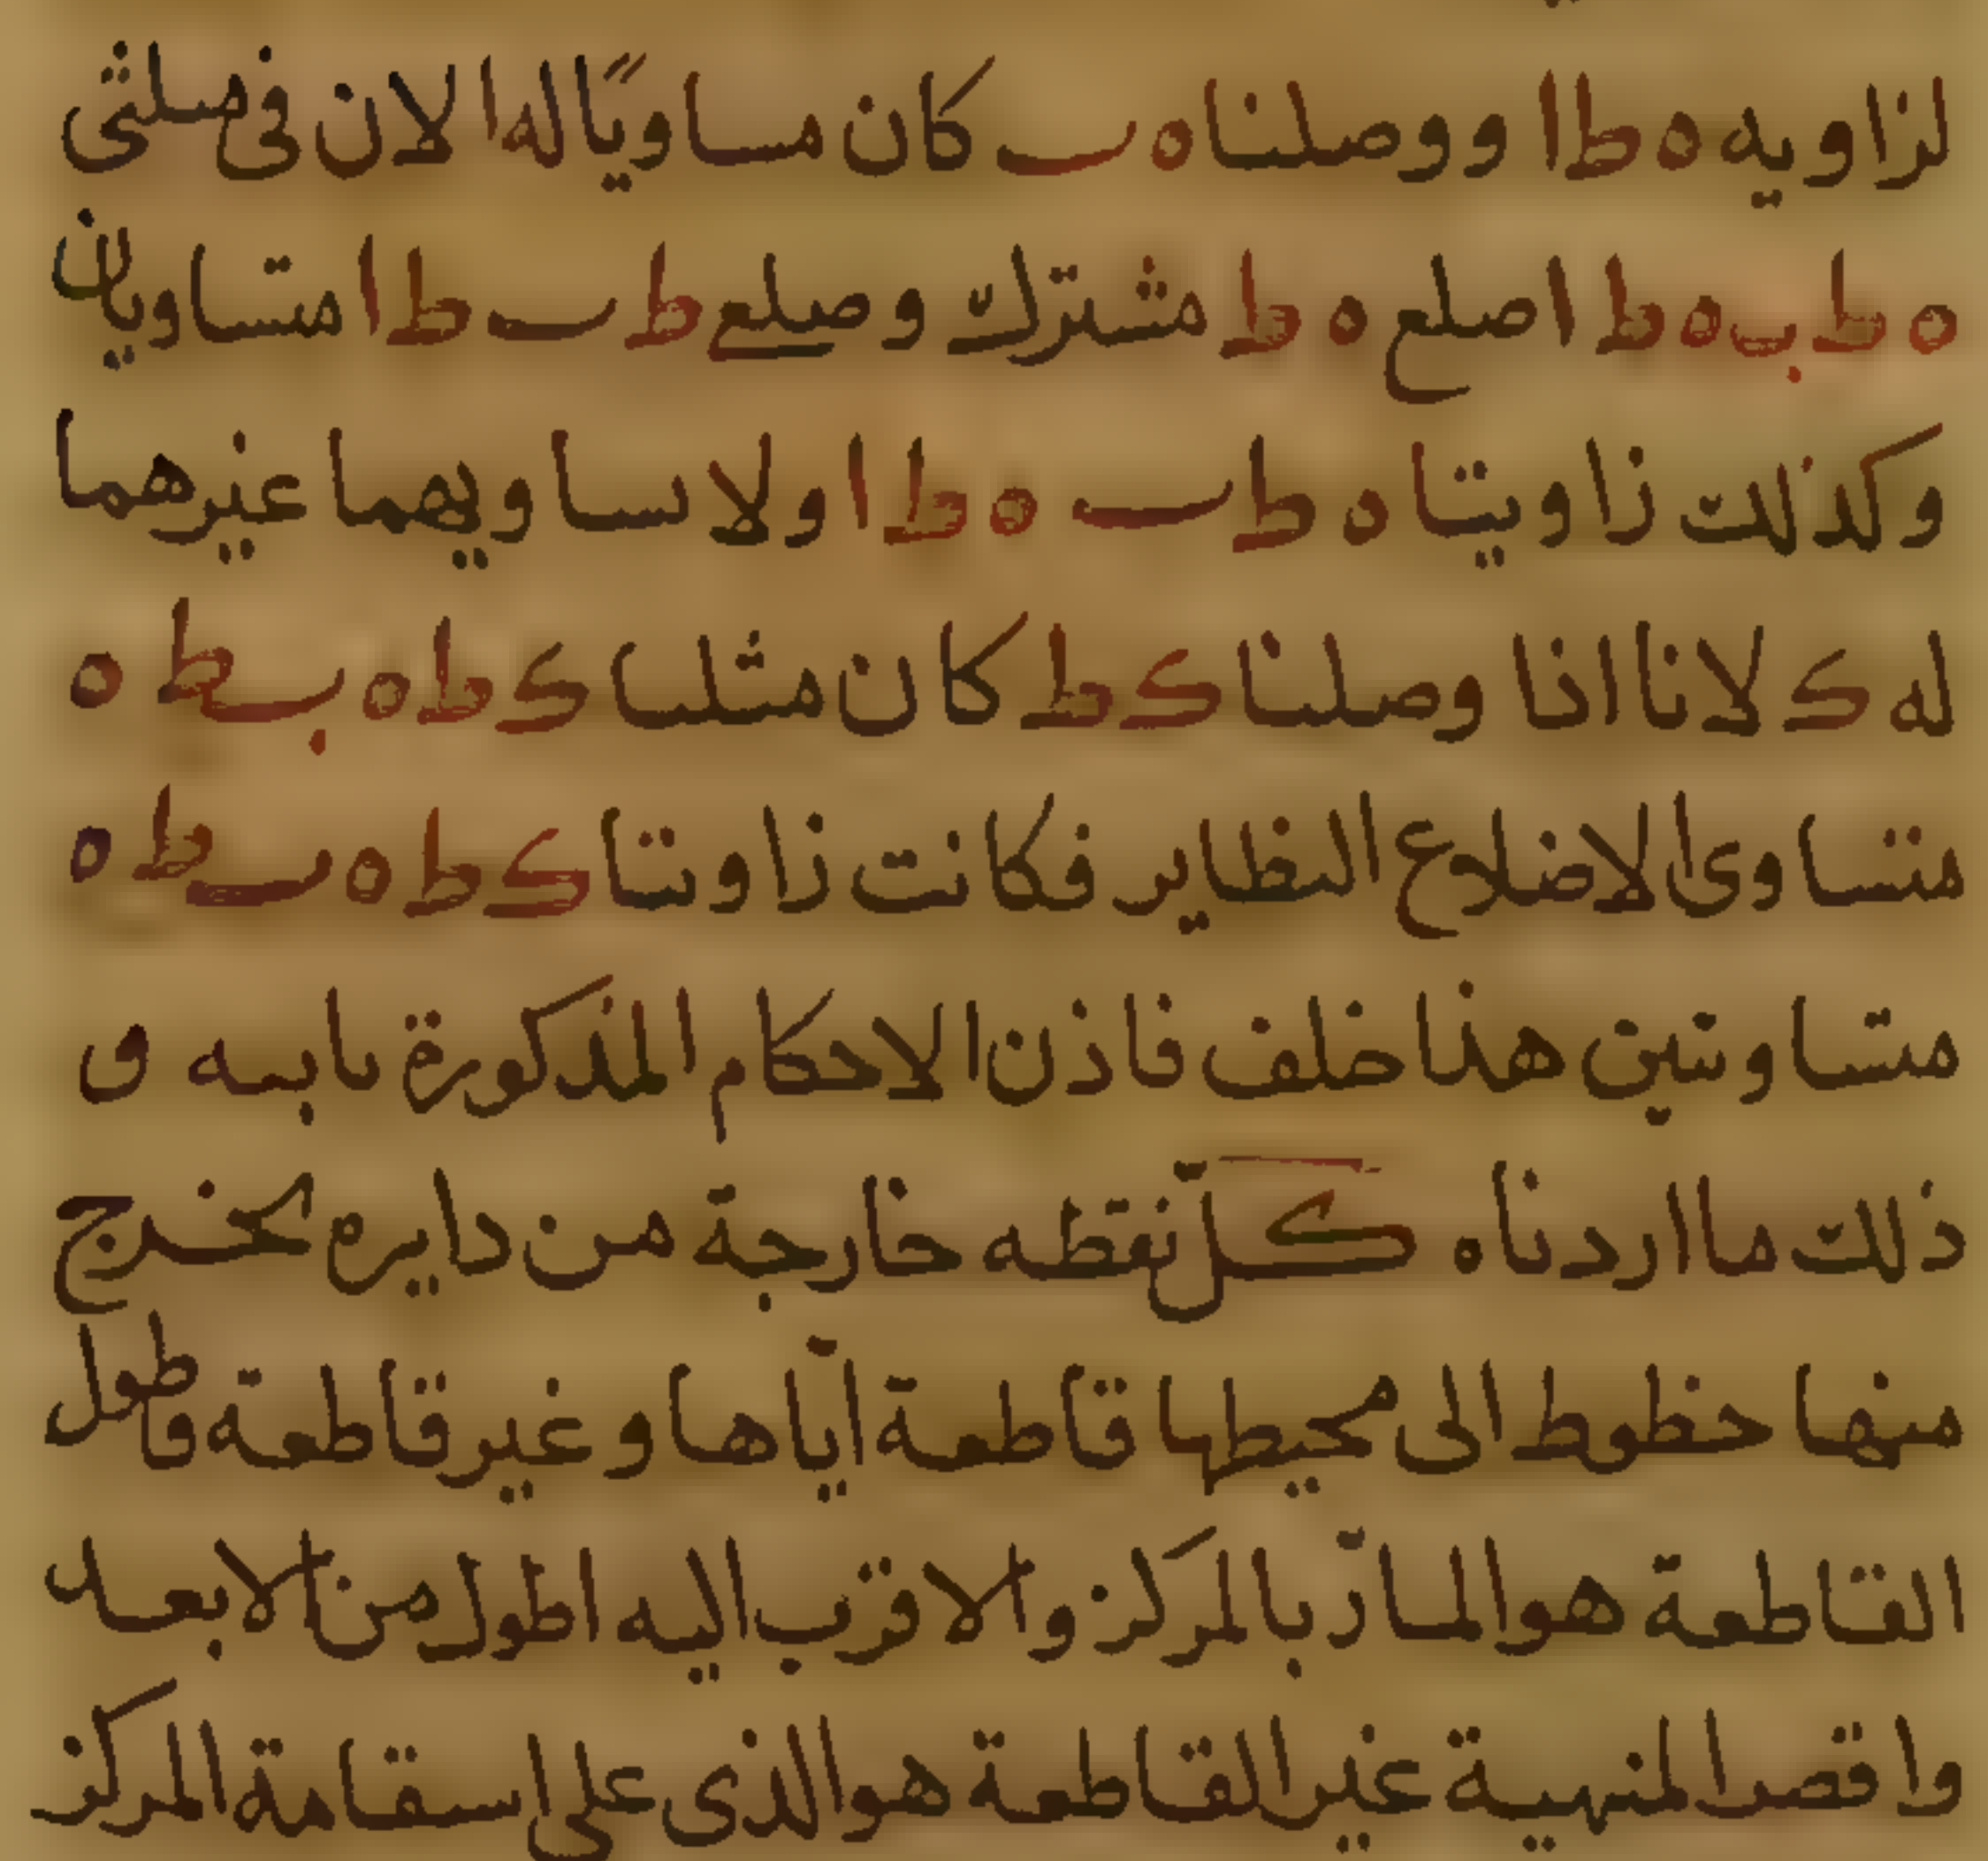 لزاويه ه ط ا ووصلنا ه ب كان مساويًا له ا لان فى مثلثى
ه ط ب ه ط ا ضلع ه ط مشترك وضلع ط ب ط ا متساويان
وكذلك زاويتا ه ط ب ه ط ا ولا ىساويهما غيرهما
له ك لانا اذا وصلنا ك ط كان مثلثا ك ط ه ب ط ه
متساوى الاضلاع النظاير فكانت زاوىتا ك ط ه ب ط ه
متساوىتين هذا خلف فاذن الاحكام المذكورة ثابىه و
ذلك ما اردناه ه كل نقطه خارجة من دايره يخرج
منها خطوط الى محيطها قاطعة اياها وغير قاطعة فاطول
القاطعة هو المار بالمركز والاقرب اليه اطول من الابعد
واقصر المنهية غير القاطعة هو الذى على استقامة المركز